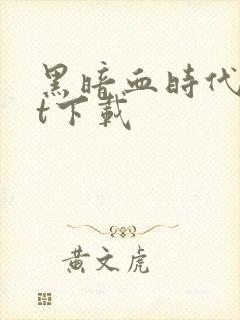 黑暗血時代
t下載
黃文虎